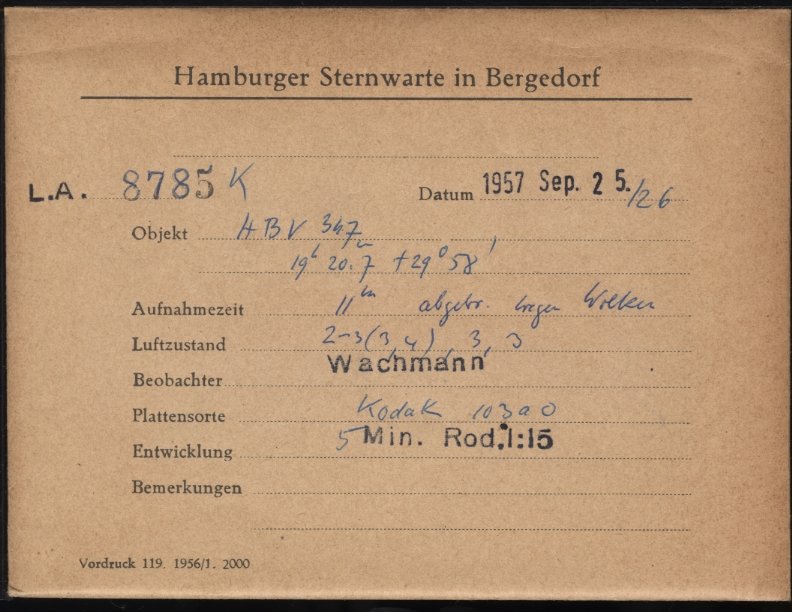 Hamburger Sternwarte in Bergedorf
L.A. 8785 K Datum 1957 Sep. 25./26
Objekt HBV 347
19h 20.m7 +29° 58'
Aufnahmezeit 11m abgebr. wegen Wolken
Luftzustand 2-3(3,4), 3, 3
Beobachter Wachmann
Plattensorte Kodak 103aO
Entwicklung 5 Min. Rod. 1:15
Bemerkungen
Vordruck 119. 1956/1. 2000